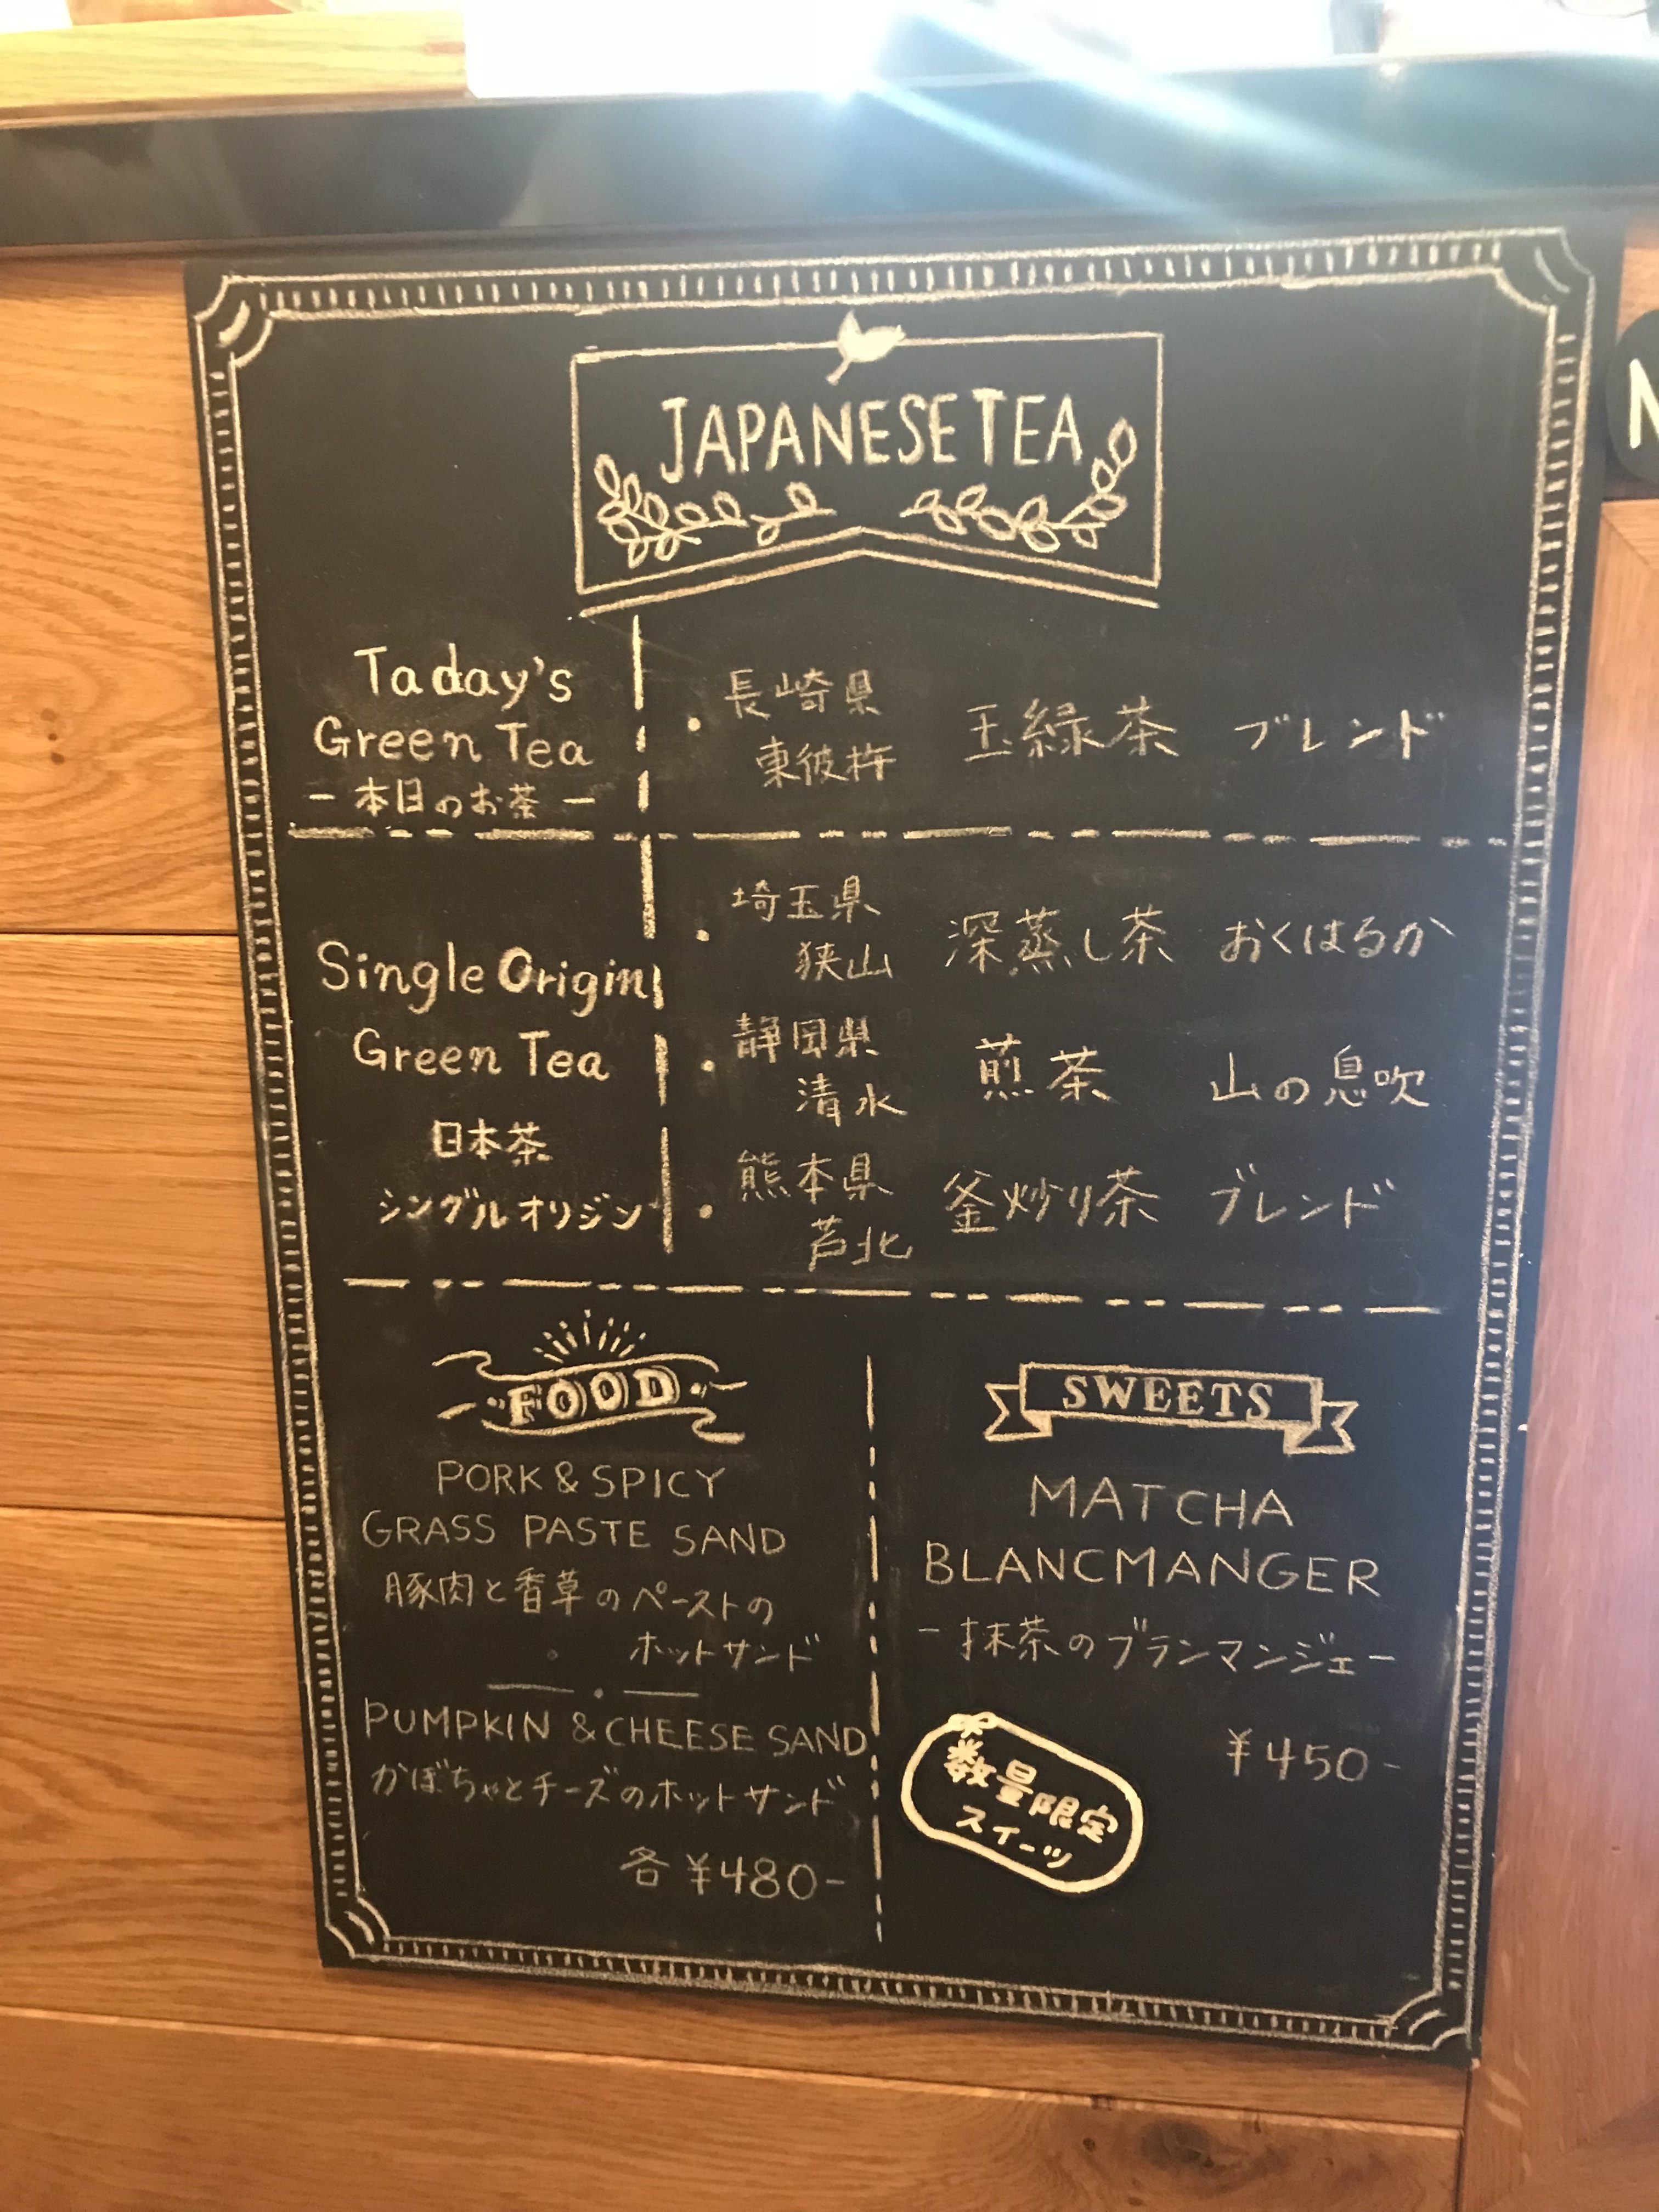 JAPANESE TEA
Taday's
Green Tea
- 本日のお茶 -
・長崎県
東彼杵
玉緑茶 ブレンド
Single Origin
Green Tea
日本茶
シングルオリジン
・埼玉県
狭山
深蒸し茶 おくはるか
・静岡県
清水
煎茶 山の息吹
・熊本県
芦北
釜炒り茶 ブレンド
FOOD
PORK & SPICY
GRASS PASTE SAND
豚肉と香草のペーストの
ホットサンド
PUMPKIN & CHEESE SAND
かぼちゃとチーズのホットサンド
各 ¥480-
SWEETS
MATCHA
BLANCMANGER
- 抹茶のブランマンジェ -
¥450-
数量限定
スイーツ